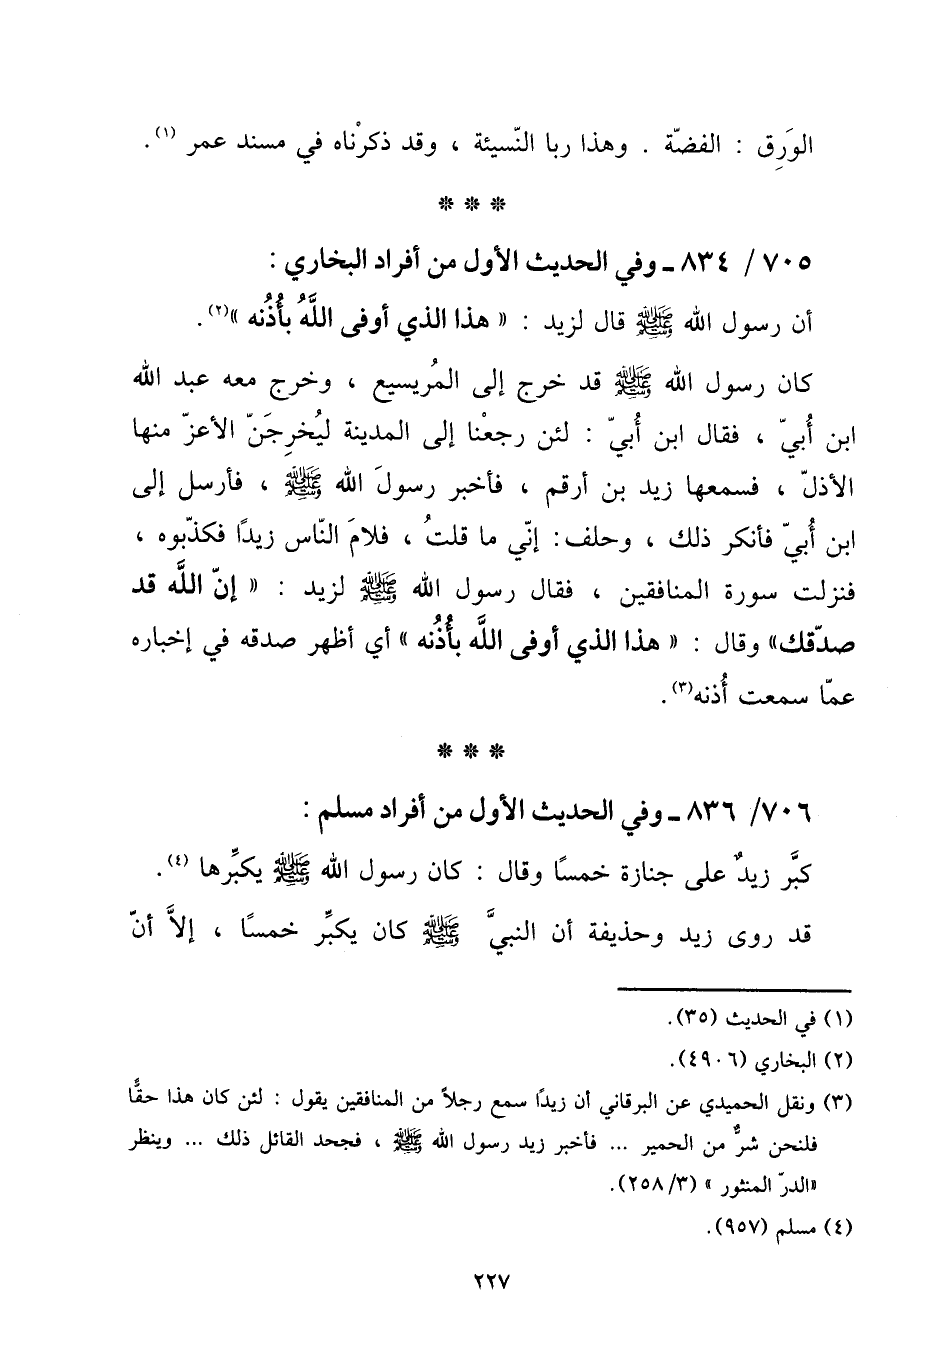 الوَرِق : الفضّة . وهذا ربا النّسيئة ، وقد ذكرْناه في مسند عمر (١).
* * *
٧٠٥ / ٨٣٤ ـ وفي الحديث الأول من أفراد البخاري :
أن رسول الله ﷺ قال لزيد : « هذا الذي أوفى اللَّهُ بأُذُنه »(٢).
كان رسول الله ﷺ قد خرج إلى المُريسيع ، وخرج معه عبد الله
ابن أُبيّ ، فقال ابن أُبيّ : لئن رجعْنا إلى المدينة ليُخرِجَنّ الأعزّ منها
الأذلّ ، فسمعها زيد بن أرقم ، فأخبر رسولَ الله ﷺ ، فأرسل إلى
ابن أُبيّ فأنكر ذلك ، وحلف: إنّي ما قلتُ ، فلامَ النّاس زيدًا فكذّبوه ،
فنزلت سورة المنافقين ، فقال رسول الله ﷺ لزيد : « إنّ اللَّه قد
صدّقك» وقال : « هذا الذي أوفى اللَّه بأُذُنه » أي أظهر صدقه في إخباره
عمّا سمعت أُذنه(٣).
* * *
٧٠٦ / ٨٣٦ ـ وفي الحديث الأول من أفراد مسلم :
كبَّر زيدٌ على جنازة خمسًا وقال : كان رسول الله ﷺ يكبِّرها (٤).
قد روى زيد وحذيفة أن النبيَّ ﷺ كان يكبِّر خمسًا ، إلاَّ أنّ
(١) في الحديث (٣٥).
(٢) البخاري (٤٩٠٦).
(٣) ونقل الحميدي عن البرقاني أن زيدًا سمع رجلاً من المنافقين يقول : لئن كان هذا حقًّا
فلنحن شرٌّ من الحمير ... فأخبر زيد رسول الله ﷺ ، فجحد القائل ذلك ... وينظر
«الدرّ المنثور » (٣/ ٢٥٨).
(٤) مسلم (٩٥٧).
٢٢٧